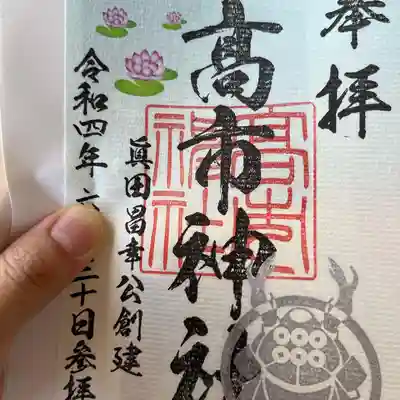 奉拝
高市神社
眞田昌幸公創建
令和四年六
三十日参拝
高市神社